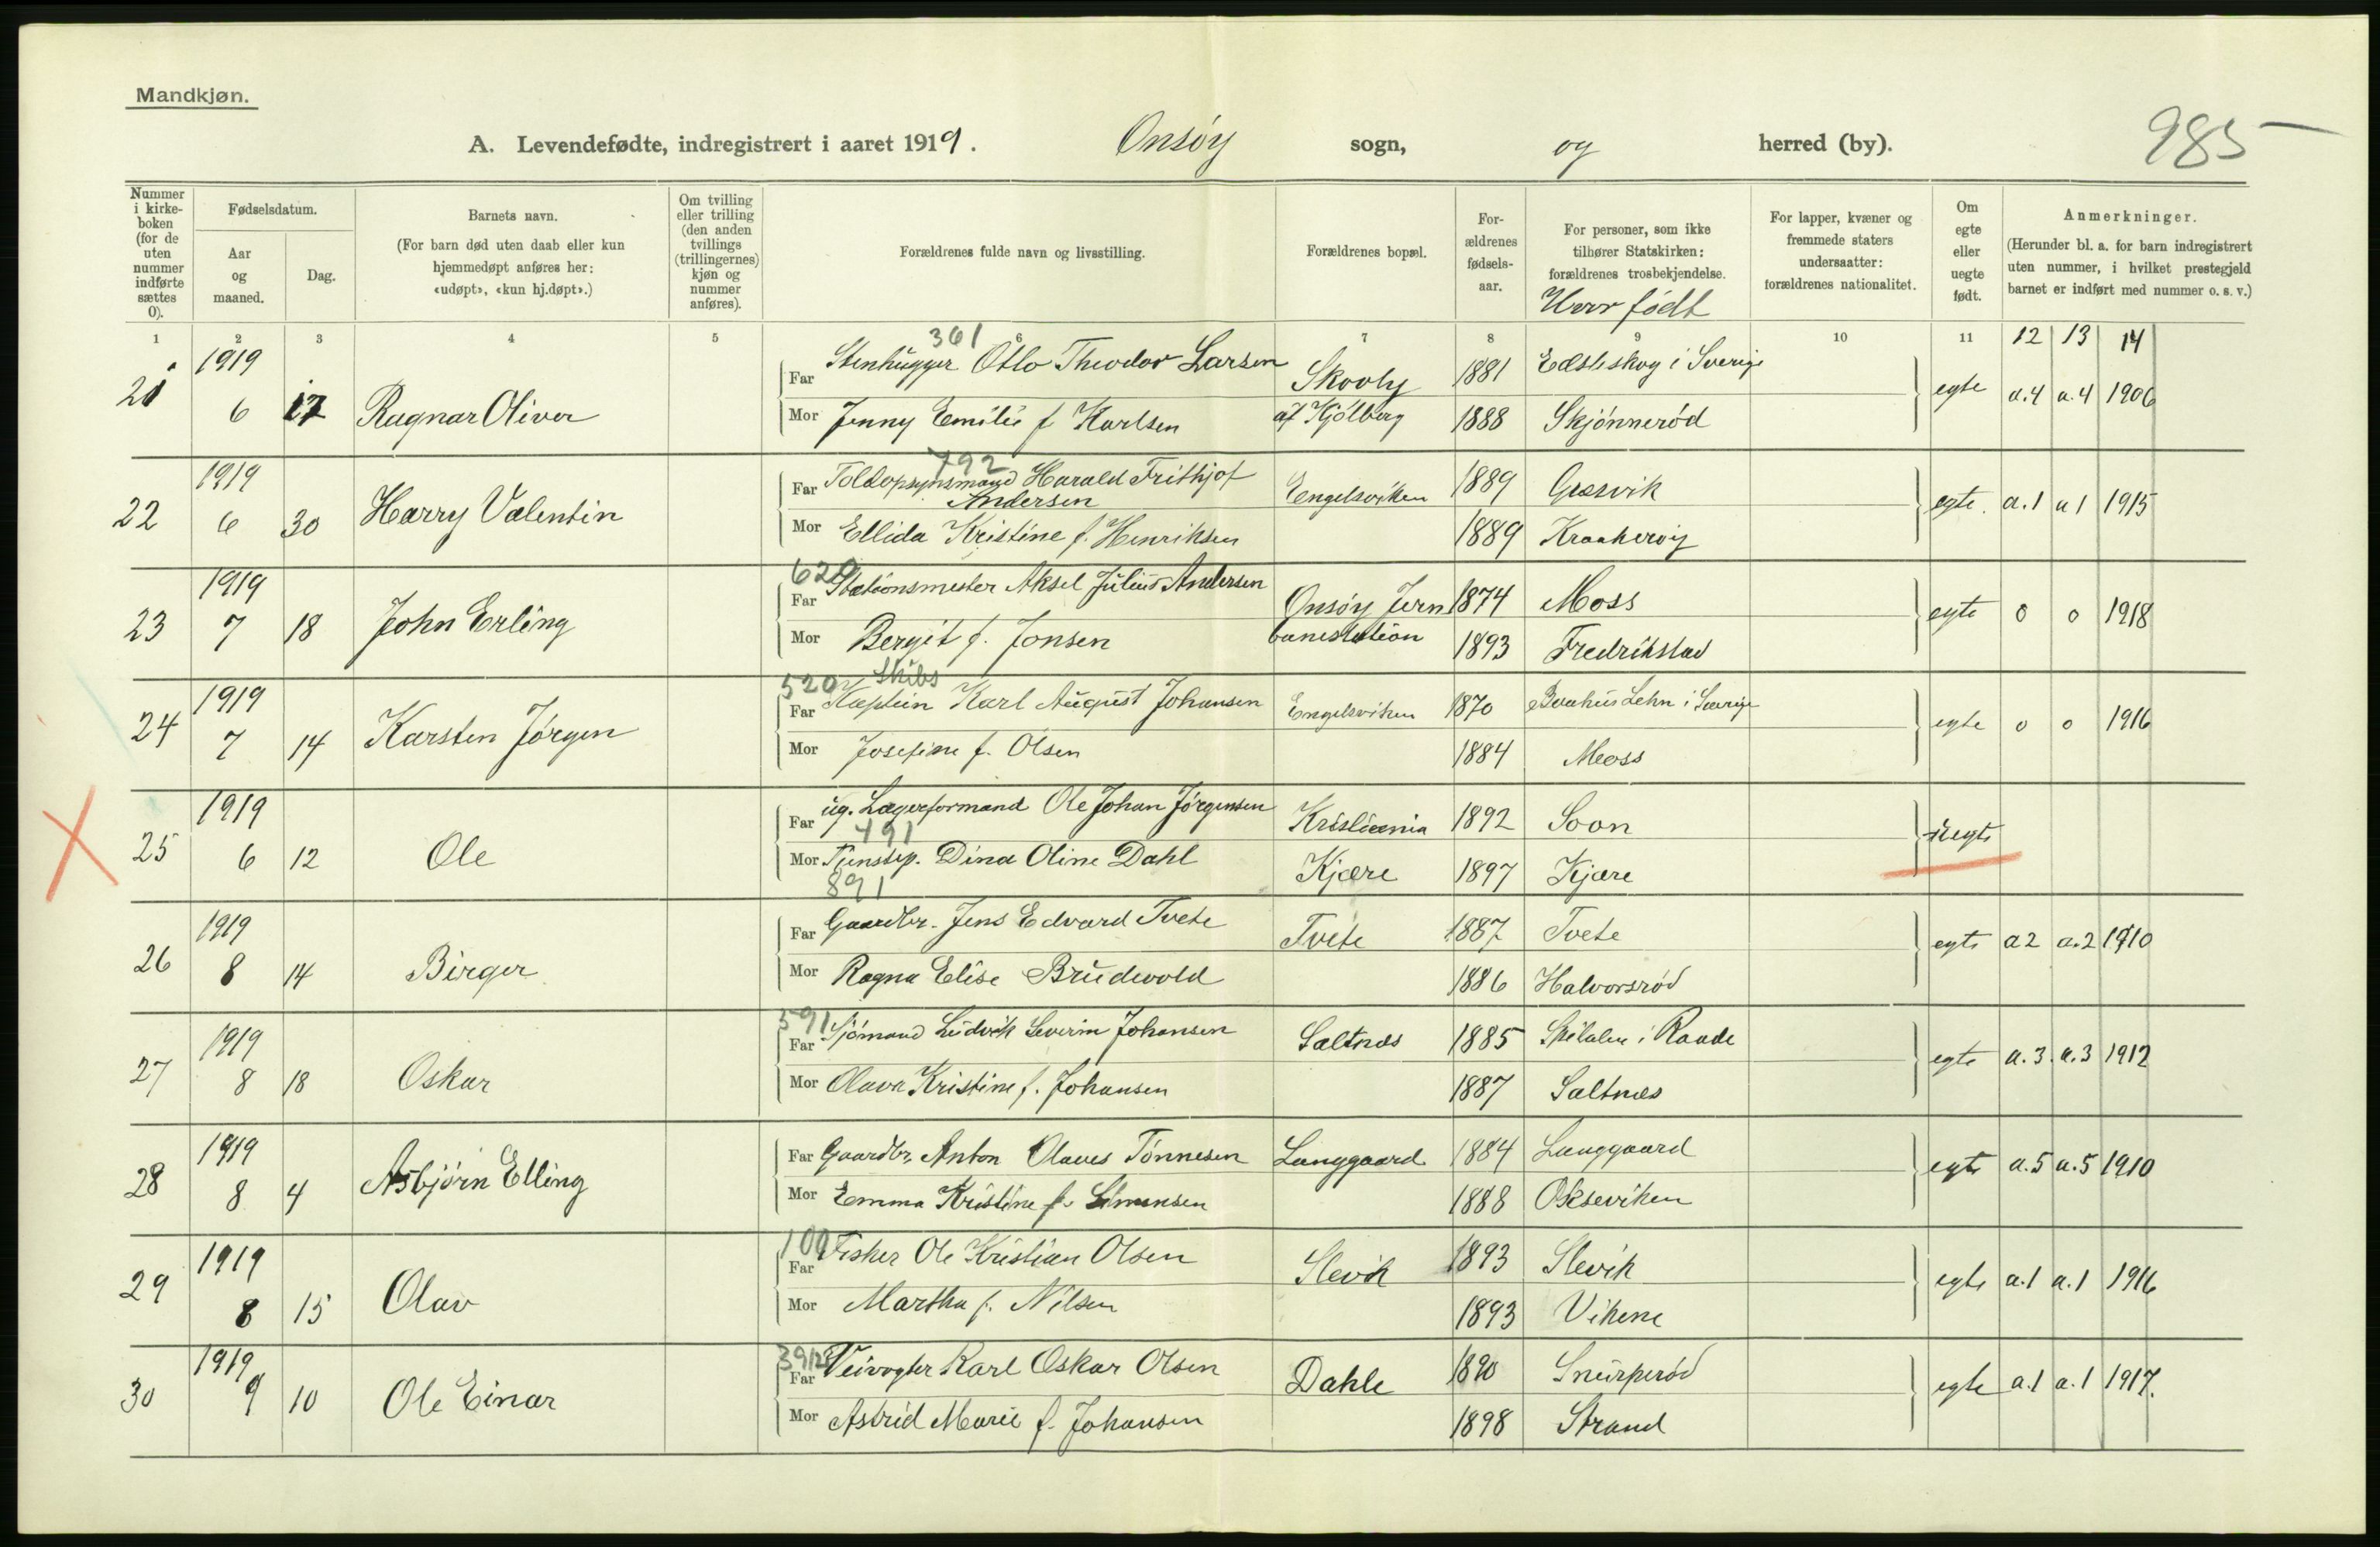 Mandkjøn.
A. Levendefødte, indregistrert i aaret 1919. Onsöy sogn, og herred (by).
985
Nummer i kirke-boken (for de uten nummer indførte sættes 0).
Fødselsdatum.
Aar og maaned.
Dag.
Barnets navn.
(For barn død uten daab eller kun hjemmedøpt anføres her: «udøpt», «kun hj.døpt».)
Om tvilling eller trilling (den anden tvillings (trillingernes) kjøn og nummer anføres).
Forældrenes fulde navn og livsstilling.
Forældrenes bopæl.
For-ældrenes fødsels-aar.
For personer, som ikke tilhører Statskirken: forældrenes trosbekjendelse.
Hvor födt
For lapper, kvæner og fremmede staters undersaatter: forældrenes nationalitet.
Om egte eller uegte født.
Anmerkninger.
(Herunder bl. a. for barn indregistrert uten nummer, i hvilket prestegjeld barnet er indført med nummer o. s. v.)
1 2 3 4 5 6 7 8 9 10 11 12 13 14
361
21 1919 6 17 Ragnar Oliver
Far Stenhugger Otto Theodor Larsen Skovly 1881 Edsleskog i Sverige
egte a.4 a.4 1906
Mor Jenny Emilie f Karlsen af Kjölberg 1888 Skjönneröd
792
22 1919 6 30 Harry Valentin
Far Toldopsynsmand Harald Frithjof Andersen Engelsviken 1889 Græsvik
egte. a.1 a1 1915
Mor Ellida Kristine f. Henriksen 1889 Kraakeröy
620
23 1919 7 18 John Erling
Far Stationsmester Aksel Julius Andersen Onsöy Jern 1874 Moss
egte 0 0 1918
Mor Bergit f. Jonsen banestation 1893 Fredrikstad
520 Skibs
24 1919 7 14 Karsten Jörgen
Far Kaptein Karl August Johansen Engelsviken 1870 Baahus Lehn i Sverige
egte 0 0 1916
Mor Josefine f. Olsen 1884 Moss
25 1919 6 12 Ole
Far ug. Lagerformand Ole Johan Jörgensen Kristiania 1892 Soon
491
uegte
Mor Tjenstep. Dina Oline Dahl Kjære 1897 Kjære
891
26 1919 8 14 Birger
Far Gaardbr. Jens Edvard Tvete Tvete 1887 Tvete
egte a2 a.2 1910
Mor Ragna Elise Brudevold 1886 Halvorsröd
591
27 1919 8 18 Oskar
Far Sjömand Ludvik Severin Johansen Saltnæs 1885 i Raade
egte a.3 a.3 1912
Mor Olava Kristine f. Johansen 1887 Saltnæs
28 1919 8 4 Asbjörn Elling
Far Gaardbr. Anton Olaves Tönnesen Langgaard 1884 Langgaard
egte a.5 a.5 1910
Mor Emma Kristine f. Simensen 1888 Okseviken
100
29 1919 8 15 Olav
Far Fisker Ole Kristian Olsen Slevik 1893 Slevik
egte a.1 a.1 1916
Mor Martha f. Nilsen 1893 Vikene
30 1919 9 10 Ole Einar
Far Veivogter Karl Oskar Olsen Dahle 1890 Snurperöd
egte a.1 a.1 1917.
Mor Astrid Marie f. Johansen 1898 Strand